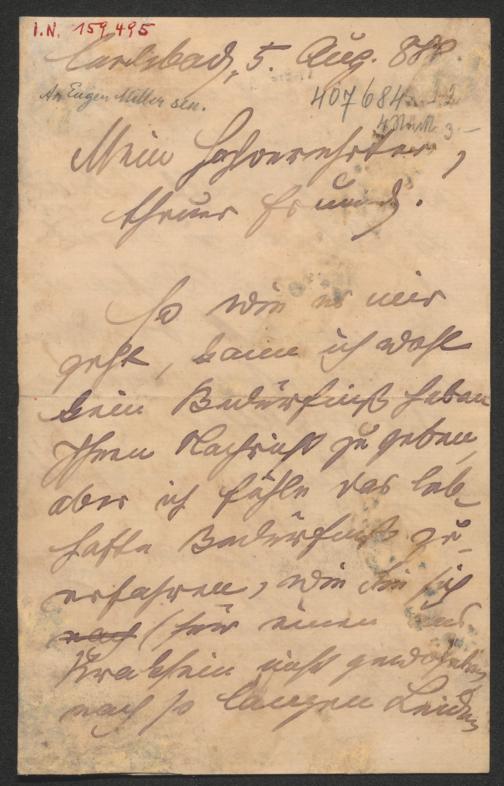 I.N. 159.495
Carlsbad, 5. Aug. 88
An Eugen Miller sen.
407/684
Mein Hochverehrter,
theurer Freund.
So wie es mir
geht, kann ich wohl
kein Bedürfniß haben
Ihnen Nachricht zu geben,
aber ich fühle das leb-
hafte Bedürfniß zu
erfahren, wie Sie sich
nach (für einen
Kranksein nicht
nach so langen Leiden